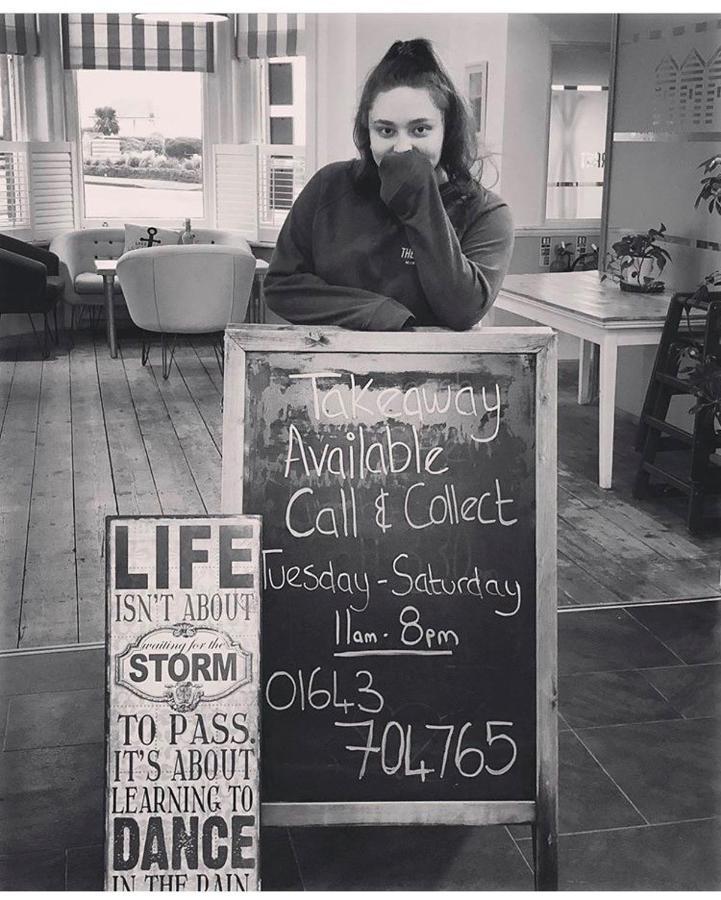 THE
Takeaway
Available
Call & Collect
Tuesday - Saturday
11am - 8pm
01643
704765
LIFE
ISN'T ABOUT
waiting for the
STORM
TO PASS.
IT'S ABOUT
LEARNING TO
DANCE
IN THE RAIN